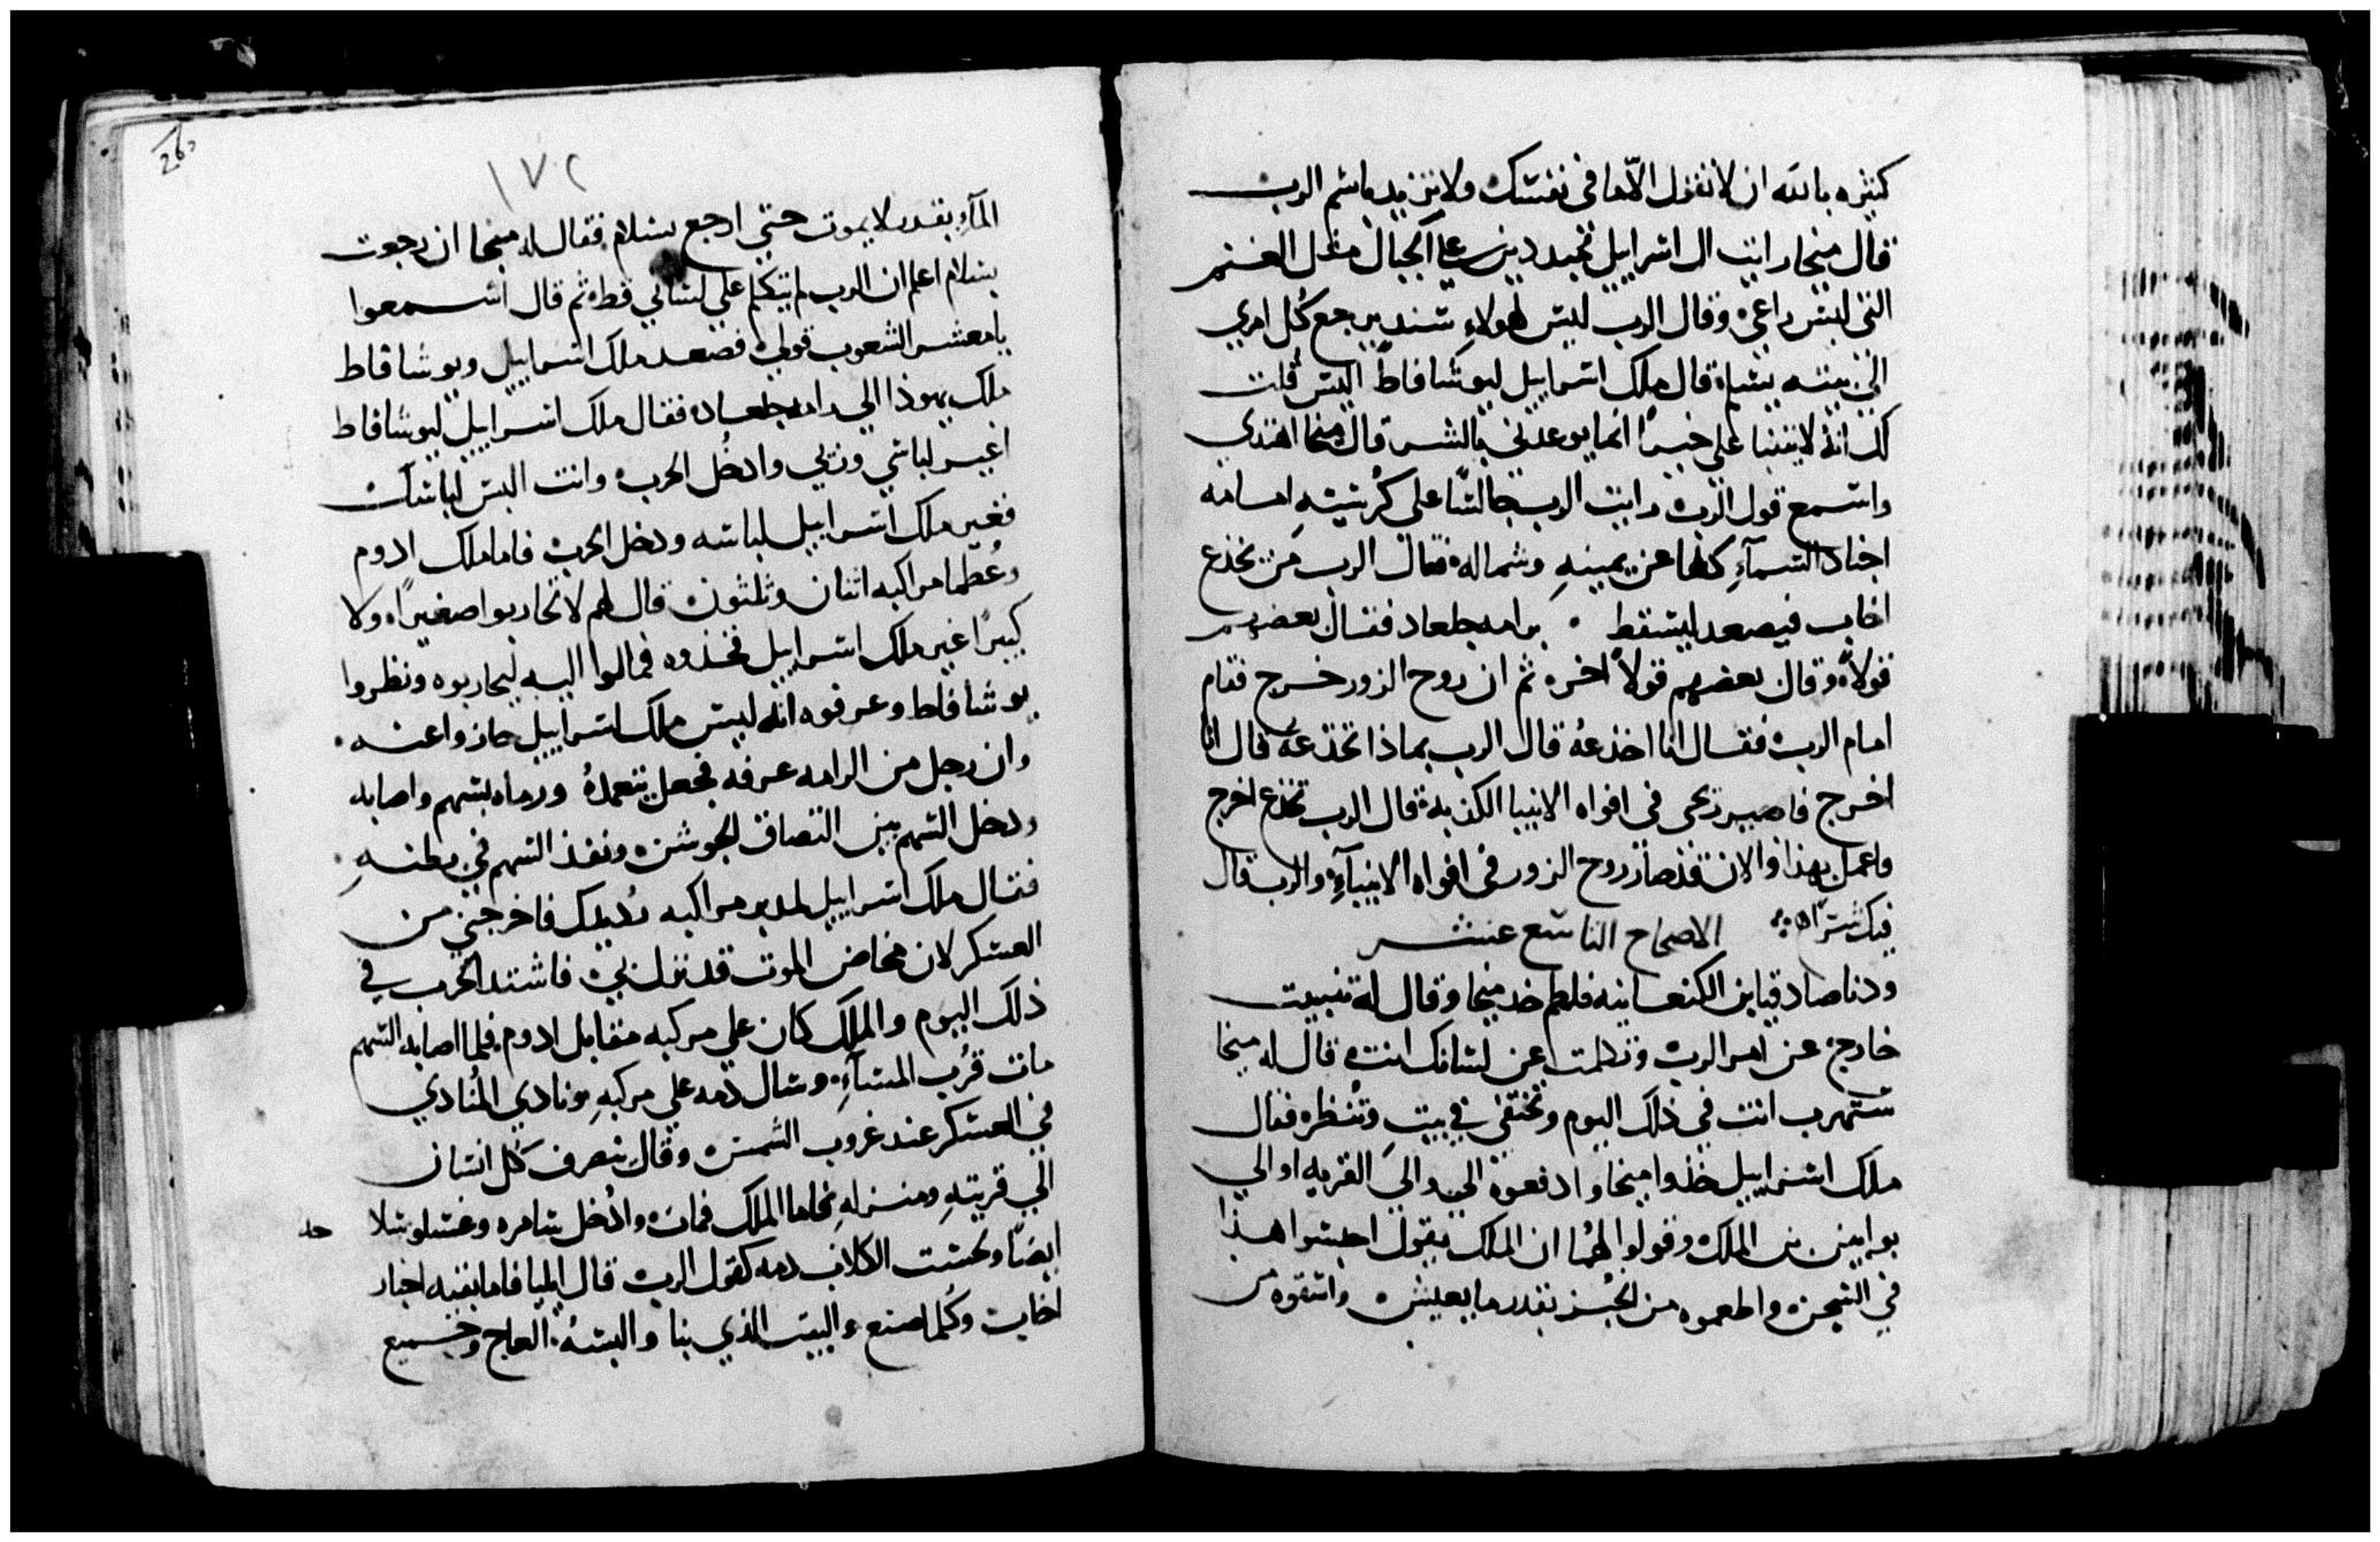 كثيره بالله ان لا تقول الا ما في نفسك ولا تزيد باسم الرب
قال ميخا رايت ال اسراييل تجبددين علي الجبال مثل الغنم
التي ليس راعي وقال الرب ليس لهولاءِ سند يرجع كُل امري
الي بيته بشباة قال ملك اسراييل ليوشافاط اليس قلت
لك انه لا يتنبا علي خيرًا انما يوعدني بالشر قال ميخا اهتدي
واسمع قول الرب رايت الرب جالسًا على كرسيهِ امامه
اجناد السماءِ كلها عن يمينهِ وشماله فقال الرب من يخدع
اخاب فيصعد ليسقط برامه جلعاد فقال بعضهم
قولاً وقال بعضهم قولاً اخر ثم ان روح الزور خرج فقام
امام الرب فقال انا اخدعهُ قال الرب بماذا تخدعهُ قال انا
اخرج فاصير روحي في افواه الانبيا الكذبة قال الرب تخدع اخرج
واعمل بهذا والان قد صار روح الزور في افواه الانبياءِ والرب قال
فيك شرًا الاصحاح التاسع عشر
ودنا صادقيا بن الكنعانيه فلطم خد ميخا وقال له تنبيت
خارج عن امر الرب وتكلمت عن لسانك انت قال له ميخا
ستهرب انت في ذلك اليوم وتختفي في بيت وتنظر فقال
ملك اسراييل خذوا ميخا وادفعوه الي والي القريه او الي
بوابين بن الملك وقولوا لهُما ان الملك يقول احبسوا هذا
في السجن واطعموه من الخُبز بقدر ما يعيش واسقوه من
١٧٢
الماءِ بقدر لا يموت حتي ارجع بسلام فقال له ميخا ان رجعت
بسلام اعلم ان الرب لم يتكلم علي لساني قط ثم قال اسمعوا
يا معشر الشعوب قولي فصعد ملك اسراييل ويوشافاط
ملك يهوذا الي رامه جلعاد فقال ملك اسراييل ليوشافاط
اغير لباسي وزيي وادخُل الحرب وانت البس لباسك
فغير ملك اسراييل لباسه ودخل الحرب فاما ملك ادوم
وعُظما مراكبه اثنان وثلثون قال لهم لا تحاربوا صغيرًا ولا
كبيرًا غير ملك اسراييل فخذوه فمالوا اليه ليحاربوه ونظروا
يوشافاط وعرفوه انه ليس ملك اسراييل حازوا عنه
وان رجل من الرامه عرفه فجعل يتعمدهُ ورماه بسهم واصابه
ودخل السهم بين التصاق الجوشن ونفذ السهم في بطنهِ
فقال ملك اسراييل لمدبر مراكبه رُد يدك فاخرجني من
العسكر لان مخاض الموت قد نزل بي فاشتد الحرب في
ذلك اليوم والملك كان علي مركبه مقابل ادوم فلما اصابه السهم
مات قُرب المساءِ وسال دمه علي مركبهِ ونادي المُنادي
في العسكر عند غروب الشمس وقال ينصرف كل انسان
الي قريتهِ ومنزلهِ فاما الملك فمات وادُخل سامره وغسلوا سلا
ايضًا ولحست الكلاب دمه كقول الرب قال ايليا فاما بقيه اخبار
اخاب وكُلما صنع والبيت الذي بنا والبسهُ العاج وجميع